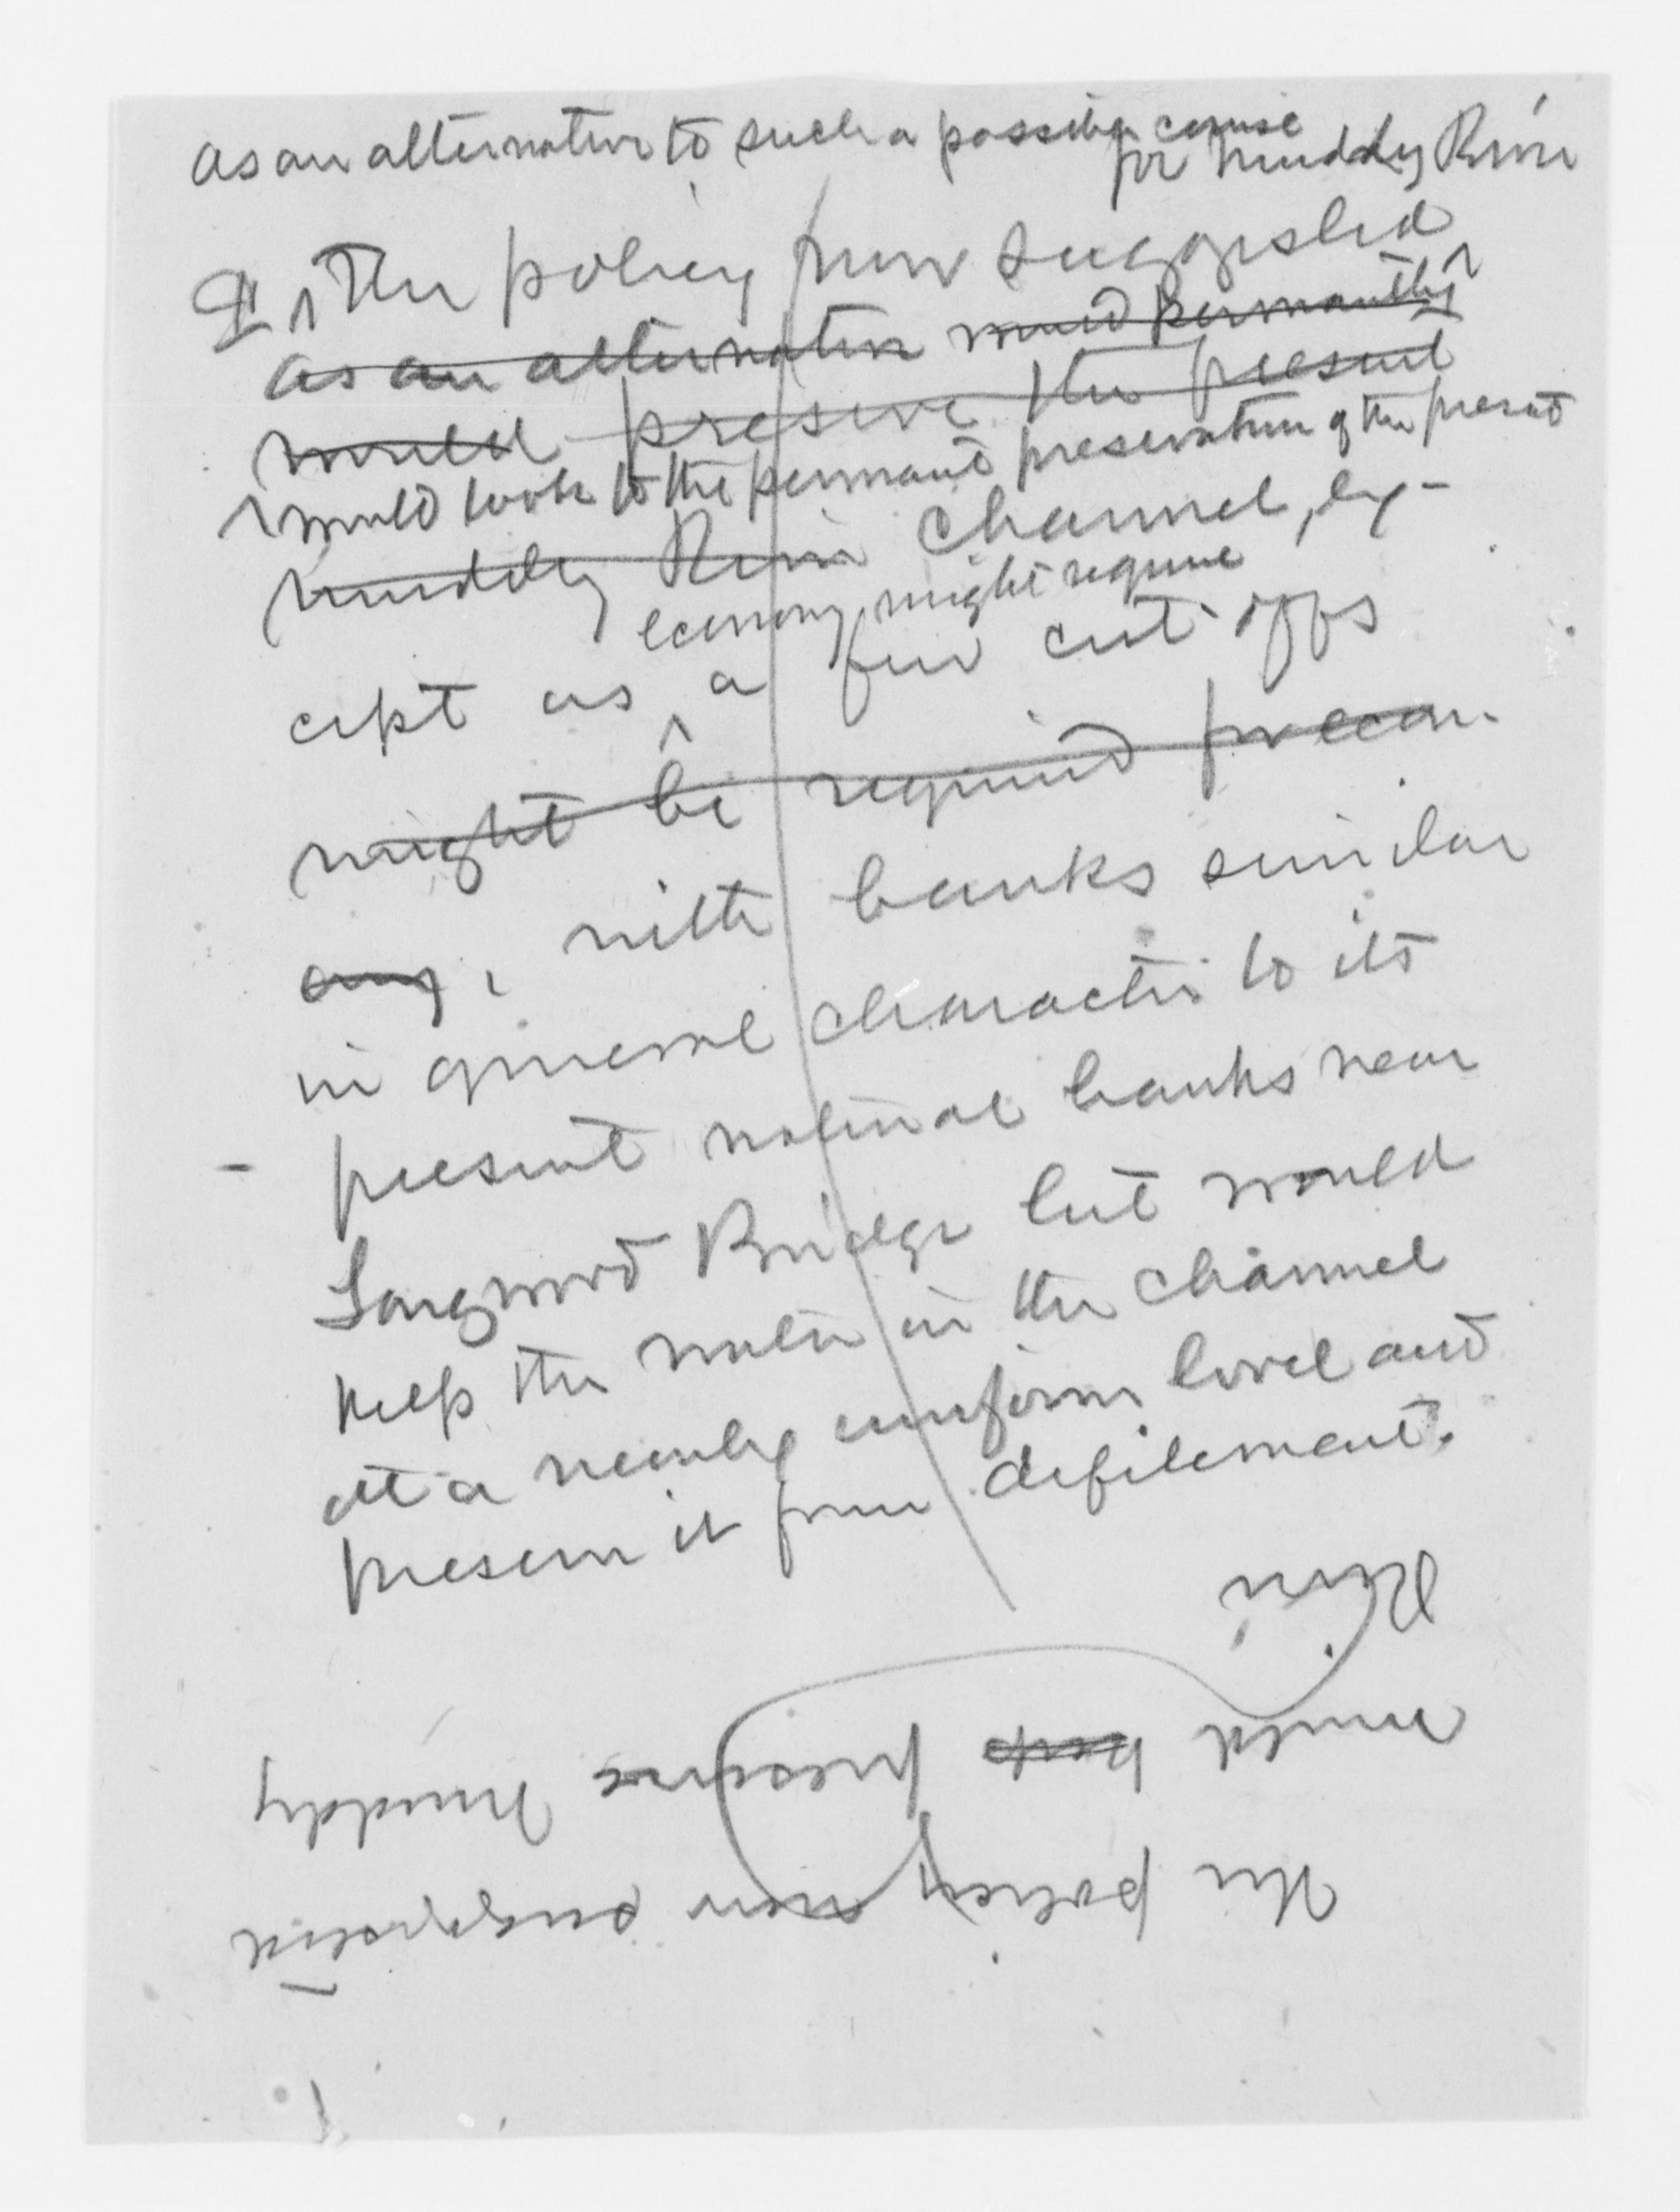 as an alternative to such a possible course
for Muddy River
The policy now suggested
as an alternative would permanently
would preserve the present
would look to the permanent preservation of the present
Muddy River channel, ex-
economy might require
cept as a few cut offs
might be required for econ-
omy, with banks similar
in general character to its
present natural banks near
Longwood Bridge but would
keep the water in the channel
at a nearly uniform level and
preserve it from defilement.
The policy now suggested
would keep preserve Muddy
River